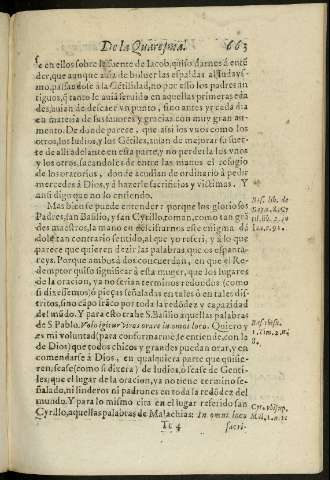 De la Quaresma. 663
se en ellos sobre la fuente de Iacob, quiso darnos à entē
der, que aunque auia de boluer las espaldas al Iudays-
mo, passandose à la Gētilidad, no por esso los padres an
tiguos, q̃ tanto le auiā seruido en aquellas primeras eda
des, auian de descaer vn punto, sino antes yr cada dia
en materia de sus fauores y gracias con muy gran au-
mento. De donde parece, que assi los vnos como los
otros, los Iudios, y los Gētiles, auian de mejorar su suer-
te de alli adelante en esta parte, y no perder la los vnos
y los otros, sacandoles de entre las manos el refugio
de los oratorios, donde acudian de ordinario à pedir
mercedes à Dios, y à hazerle sacrificios y victimas. Y
ansi digo que no lo entiendo.
Mas bien se puede entender: porque los gloriosos
Padres, san Basilio, y san Cyrillo, toman, como tan grā
des maestros, la mano en descifrarnos este enigma dā
dole tan contrario sentido, al que yo referi, y à lo que
parece que quieren dezir las palabras que os espanta-
reys. Porque ambus à dos concuerdan, en que el Re-
demptor quiso significar à esta muger, que los lugares
de la oracion, ya no serian terminos redondos (como
si dixessemos) ò pieças señaladas en tales ò en tales dis-
tritos, sino cāpo frāco por toda la redōdez y capazidad
del mūdo. Y para esto trahe S. Basilio aquellas palabras
de S. Pablo. Volo igitur viros orare in omni loco. Quiero y
es mi voluntad (para conformarme, se entiende, con la
de Dios) que todos chicos y grandes puedan orar, y en
comendarse à Dios, en qualquiera parte que quisie-
ren, sease (como si dixera) de Iudios, ò sease de Genti-
les, que el lugar de la oracion, ya no tiene termino se-
ñalado, ni linderos ni padrones en toda la redōdez del
mundo. Y para lo mismo cita en el lugar referido san
Cyrillo, aquellas palabras de Malachias: In omni loco
Tt 4 sacri-